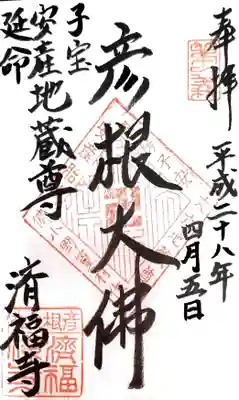 奉拝
平成二十八年
四月五日
彦根大佛
子宝
安産
延命
地蔵尊
済福寺
彦根
濟福